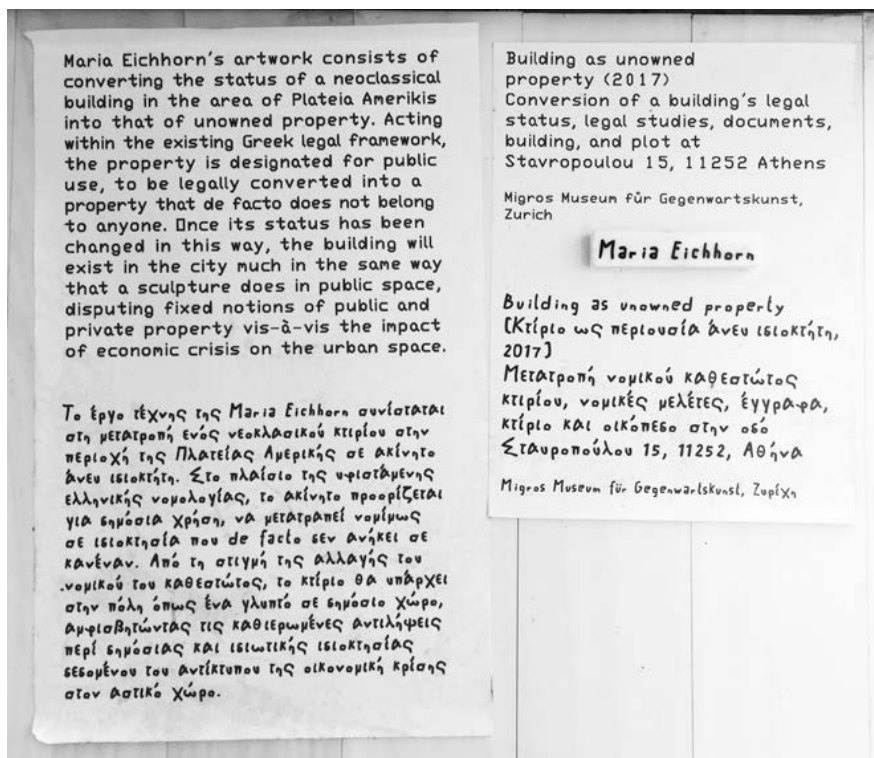 Maria Eichhorn's artwork consists of
converting the status of a neoclassical
building in the area of Plateia Amerikis
into that of unowned property. Acting
within the existing Greek legal framework,
the property is designated for public
use, to be legally converted into a
property that de facto does not belong
to anyone. Once its status has been
changed in this way, the building will
exist in the city much in the same way
that a sculpture does in public space,
disputing fixed notions of public and
private property vis-à-vis the impact
of economic crisis on the urban space.
Το έργο τέχνης της Maria Eichhorn συνίσταται
στη μετατροπή ενός νεοκλασικού κτιρίου στην
περιοχή της Πλατείας Αμερικής σε ακίνητο
άνευ ιδιοκτήτη. Στο πλαίσιο της υφιστάμενης
ελληνικής νομολογίας, το ακίνητο προορίζεται
για δημόσια χρήση, να μετατραπεί νομίμως
σε ιδιοκτησία που de facto δεν ανήκει σε
κανέναν. Από τη στιγμή της αλλαγής του
νομικού του καθεστώτος, το κτίριο θα υπάρχει
στην πόλη όπως ένα γλυπτό σε δημόσιο χώρο,
αμφισβητώντας τις καθιερωμένες αντιλήψεις
περί δημόσιας και ιδιωτικής ιδιοκτησίας
δεδομένου του αντίκτυπου της οικονομική κρίσης
στον αστικό χώρο.
Building as unowned
property (2017)
Conversion of a building's legal
status, legal studies, documents,
building, and plot at
Stavropoulou 15, 11252 Athens
Migros Museum für Gegenwartskunst,
Zurich
Maria Eichhorn
Building as unowned property
[Κτίριο ως περιουσία άνευ ιδιοκτήτη,
2017]
Μετατροπή νομικού καθεστώτος
κτιρίου, νομικές μελέτες, έγγραφα,
κτίριο και οικόπεδο στην οδό
Σταυροπούλου 15, 11252, Αθήνα
Migros Museum für Gegenwartskunst, Ζυρίχη